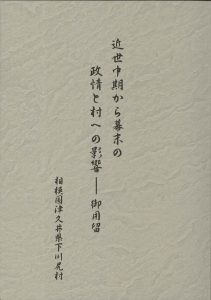 近世中期から幕末の
政情と村への影響――御用留
相模国津久井県下川尻村